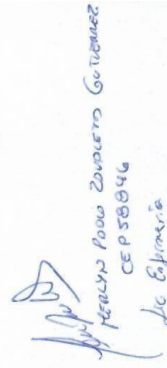 MERLYN PAOLO ZOUPLETO GUTIERREZ
CEP 58846
Lic Enfermería